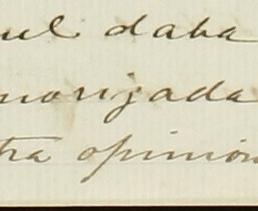 uel daba
morigada
tra opinión